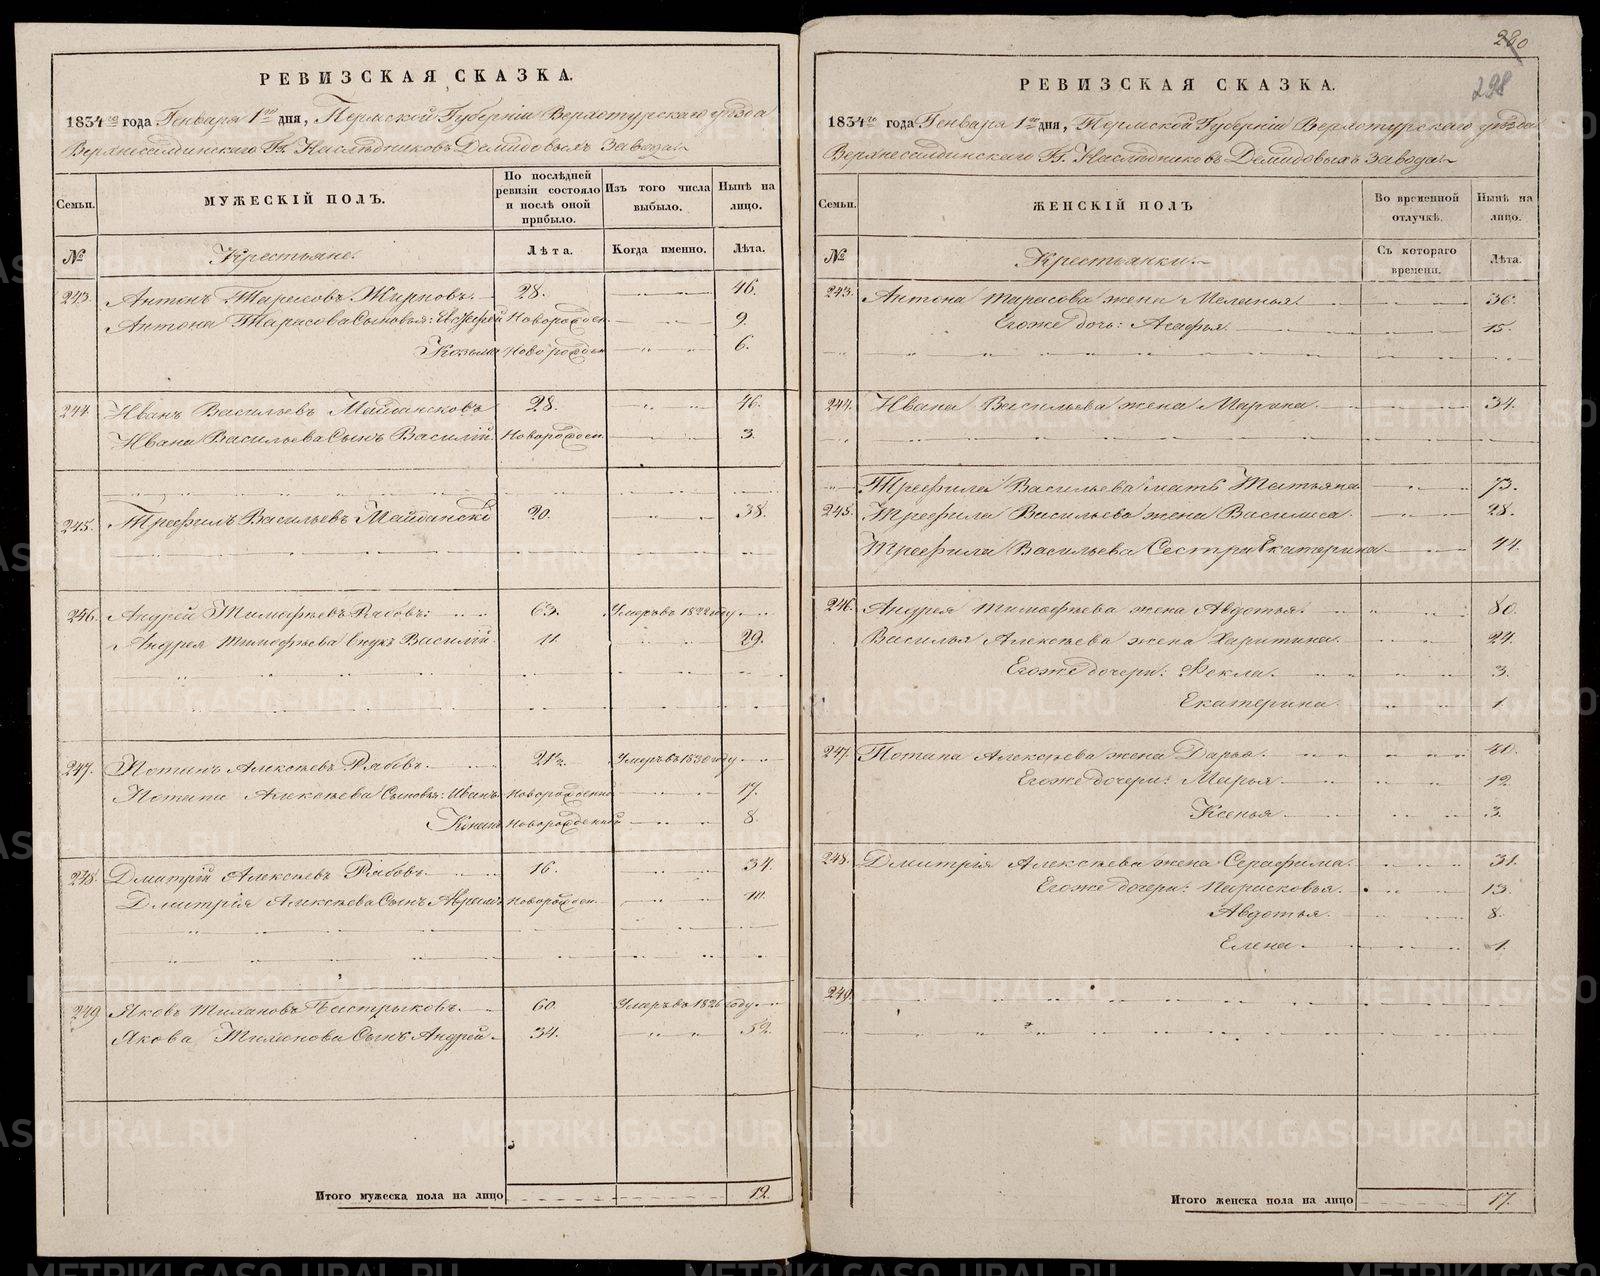 РЕВИЗСКАЯ СКАЗКА.
1834го года Генваря 1го дня, Пермской Губерніи Верхотурского уѣзда
Верхнесалдинскаго Гг. Наслѣдниковъ Демидовыхъ завода
Семьи. МУЖЕСКІЙ ПОЛЪ. По послѣдней ревизіи состояло и послѣ оной прибыло. Изъ того числа выбыло. Нынѣ на лицо.
№ Крестьяне. Лѣта. Когда именно. Лѣта.
243. Антонъ Тарасовъ Жирновъ. 28. 46.
Антона Тарасова Сыновья: Новорожден. 9.
Козьма Новорожден 6.
244. Иванъ Васильевъ Майдансковъ 28. 46.
Ивана Васильева Сынъ Василій. Новорожден. 3.
245. Трефилъ Васильевъ 20. 38.
246. Андрей Тимофѣевъ Рябовъ. 63. Умеръ въ 1822 году
Андрея Тимофѣева внукъ Василій. 11. 29.
247. Потапъ Алексѣевъ Рябовъ. 21½. Умеръ въ 1830 году
Потапа Алексѣева Сыновья: Иванъ. Новорожденный 17.
Кононъ Новорожденный 8.
248. Дмитрій Алексѣевъ Рябовъ. 16. 34.
Дмитрія Алексѣева Сынъ Новорожден.
249. Яковъ 60. Умеръ въ 1826 году
Якова Сынъ Андрей. 34. 52.
Итого мужеска пола на лицо 12.
280
298
РЕВИЗСКАЯ СКАЗКА.
1834го года Генваря 1го дня, Пермской Губерніи Верхотурского уѣзда
Верхнесалдинскаго Гг. Наслѣдниковъ Демидовыхъ завода
Семьи. ЖЕНСКІЙ ПОЛЪ Во временной отлучкѣ. Нынѣ на лицо.
№ Крестьянки. Съ котораго времени. Лѣта.
243. Антона Тарасова жена Меланья. 36.
Егоже дочь: Агафья. 15.
244. Ивана Васильева жена Марина. 34.
Трефила Васильева мать Татьяна 73.
245. Трефила Васильева жена Василиса. 28.
Трефила Васильева Сестра Екатерина 44.
246. Андрея Тимофѣева жена Авдотья. 80.
Василья Алексѣева жена Харитина. 24.
Егоже дочери: Фекла. 3.
Екатерина. 1.
247. Потапа Алексѣева жена Дарья. 40.
Егоже дочери: Марья. 12.
Ксенья. 3.
248. Дмитрія Алексѣева жена Серафима. 31.
Егоже дочери: Парасковья. 13.
Авдотья. 8.
Елена. 1.
249.
Итого женска пола на лицо 17.
METRIKI.GASO-URAL.RU